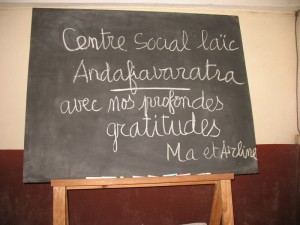 Centre Social laïc
Andafiavaratra
avec nos profondes
gratitudes
Ma et Arline